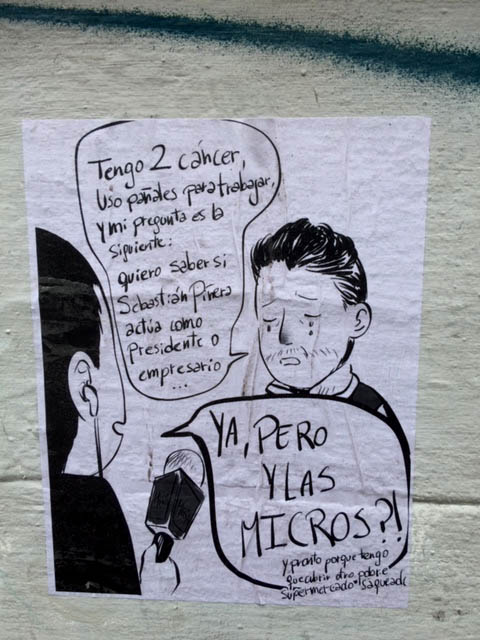 Tengo 2 cáncer,
Uso pañales para trabajar,
y mi pregunta es la
siguiente:
quiero saber si
Sebastián Piñera
actúa como
Presidente o
empresario
...
YA, PERO
Y LAS
MICROS?!
y pronto porque tengo
que cubrir otro pobre
supermercado* saqueado